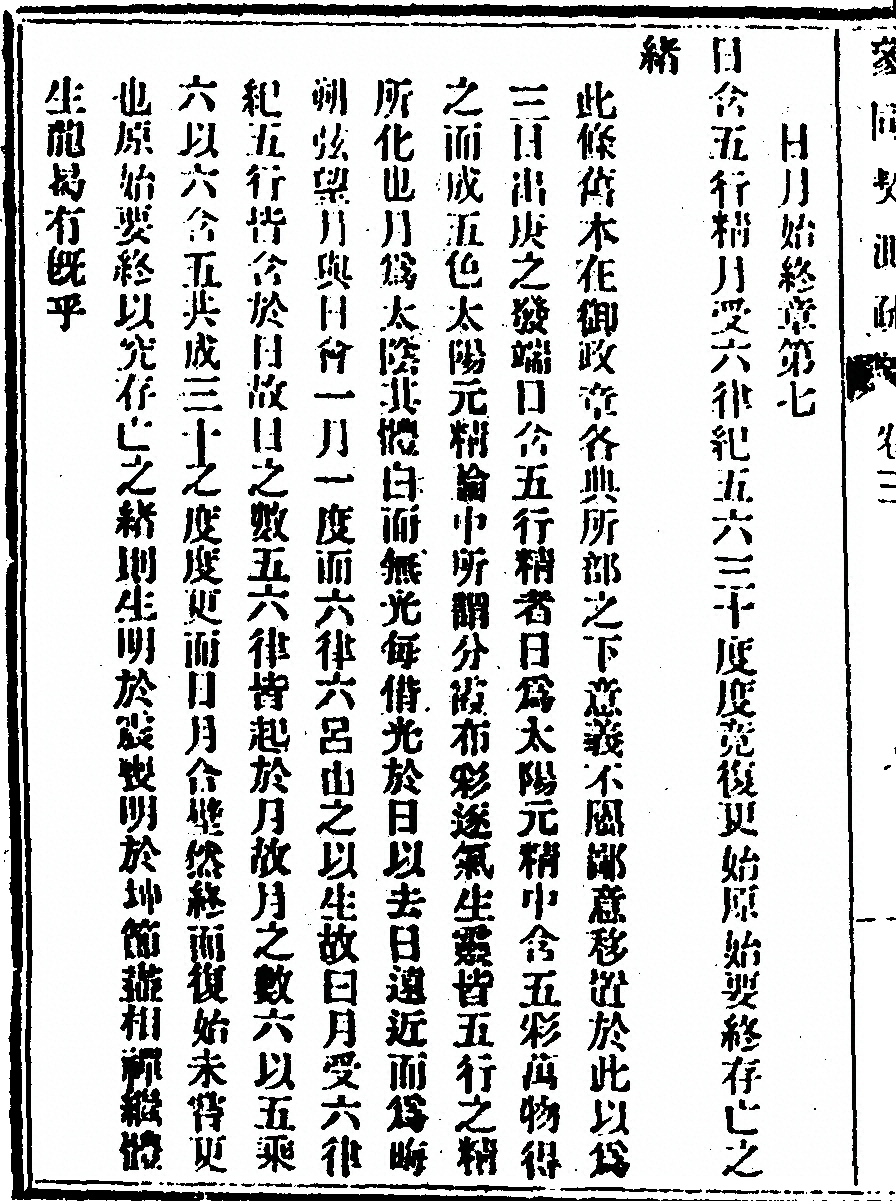 參同契測疏
卷三
日月始終章第七
日含五行精月受六律紀五六三十度度竟復更始原始要終存亡之
緒
此條舊本在御政章各典所部之下意義不屬鄙意移置於此以為
三日出庚之發端日含五行精者日為太陽元精中含五彩萬物得
之而成五色太陽元精論中所謂分霞布彩逐氣生靈皆五行之精
所化也月為太陰其體白而無光每借光於日以去日遠近而為晦
朔弦望月與日會一月一度而六律六呂由之以生故曰月受六律
紀五行皆含於日故日之數五六律皆起於月故月之數六以五乘
六以六含五共成三十之度度更而日月合璧然終而復始未嘗更
也原始要終以究存亡之緒則生明於震喪明於坤節盡相禪繼體
生龍曷有既乎